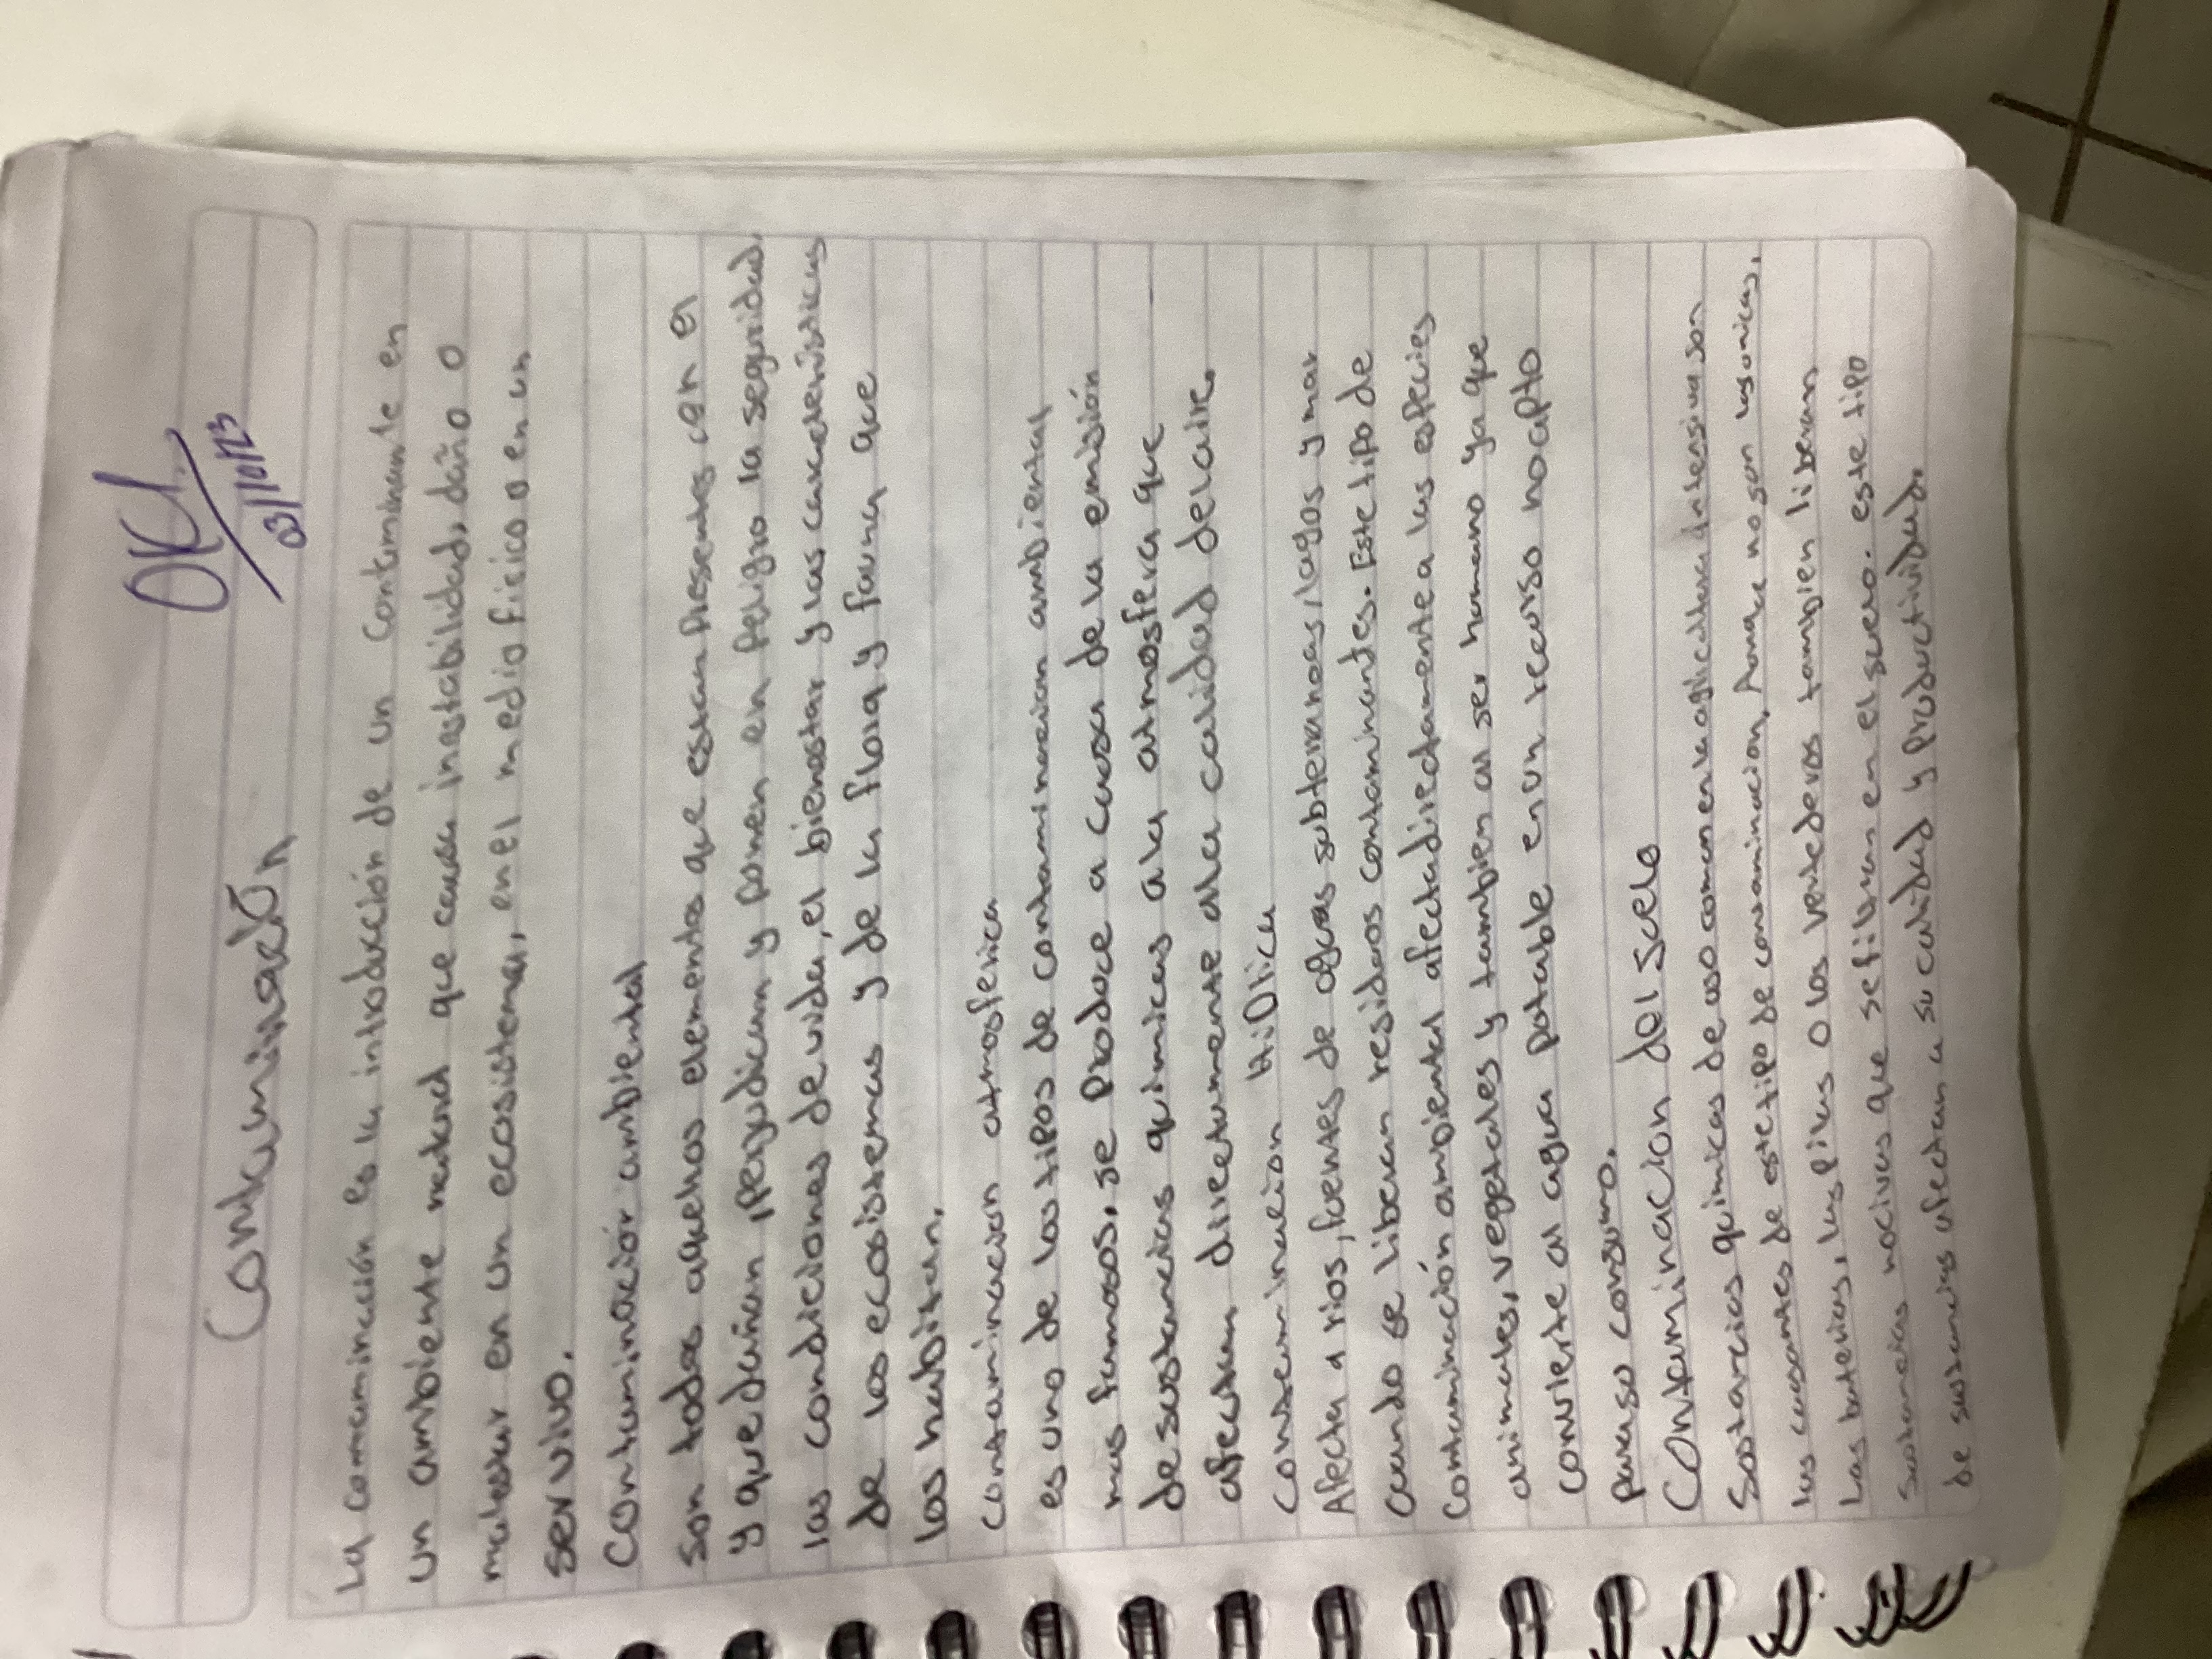 OK.
03/10/23
Contaminación
La contaminción es la introducción de un contaminante en
un ambiente natural que causa inestabilidad, daño o
malestar en un ecosistema, en el medio fisico o en un
ser vivo.
Contaminación ambiental
son todos aquellos elementos que estan presentes con el
y que dañan, perjudican y ponen en peligro la seguridad,
las condiciones de vida, el bienestar y las caracteristicas
de los ecosistemas y de la flora y fauna que
los habitan.
contaminacion atmosferica
es uno de los tipos de contaminacion ambiental
mas famosos, se produce a causa de la emisión
de sustancias quimicas a la atmosfera que
afectan directamente ala calidad del aire.
Contaminación hidrica
Afecta a rios, fuentes de aguas subterraneas, lagos y mar
Cuando se liberan residuos contaminantes. Este tipo de
contaminación ambiental afecta directamente a las especies
animales, vegetales y tambien al ser humano ya que
convierte al agua potable en un recurso no apto
para su consumo.
Contaminacion del suelo
Sustancias quimicas de uso comun en la agricultura intensiva son
las causantes de este tipo de contaminacion, Aunque no son las unicas,
Las baterias, las pilas o los vertederos tambien liberan
sustancias nocivas que se filtran en el suelo. este tipo
de sustancias afectan a su calidad y productividad.